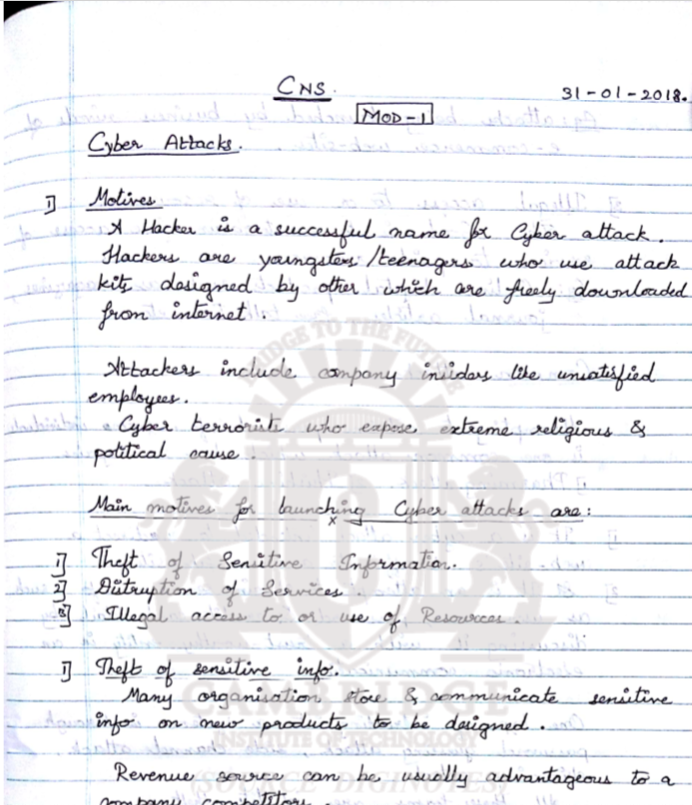 CNS.
31-01-2018.
MOD-1
Cyber Attacks.
1] Motives
A Hacker is a successful name for Cyber attack.
Hackers are youngsters/teenagers who use attack
kits designed by other which are freely downloaded
from internet
Attackers include company insiders like unsatisfied
employees.
- Cyber terrorists who expose extreme religious &
political cause.
Main motives for launching Cyber attacks are:
1] Theft of Sensitive Information.
2] Distruption of Services.
3] Illegal access to or use of Resources.
1] Theft of sensitive info.
Many organisation store & communicate sensitive
info on new products to be designed.
Revenue source can be usually advantageous to a
company competitors.
BRIDGE TO THE FUTURE
CAMBRIDGE
INSTITUTE OF TECHNOLOGY
(SOURCE DIGINOTES)